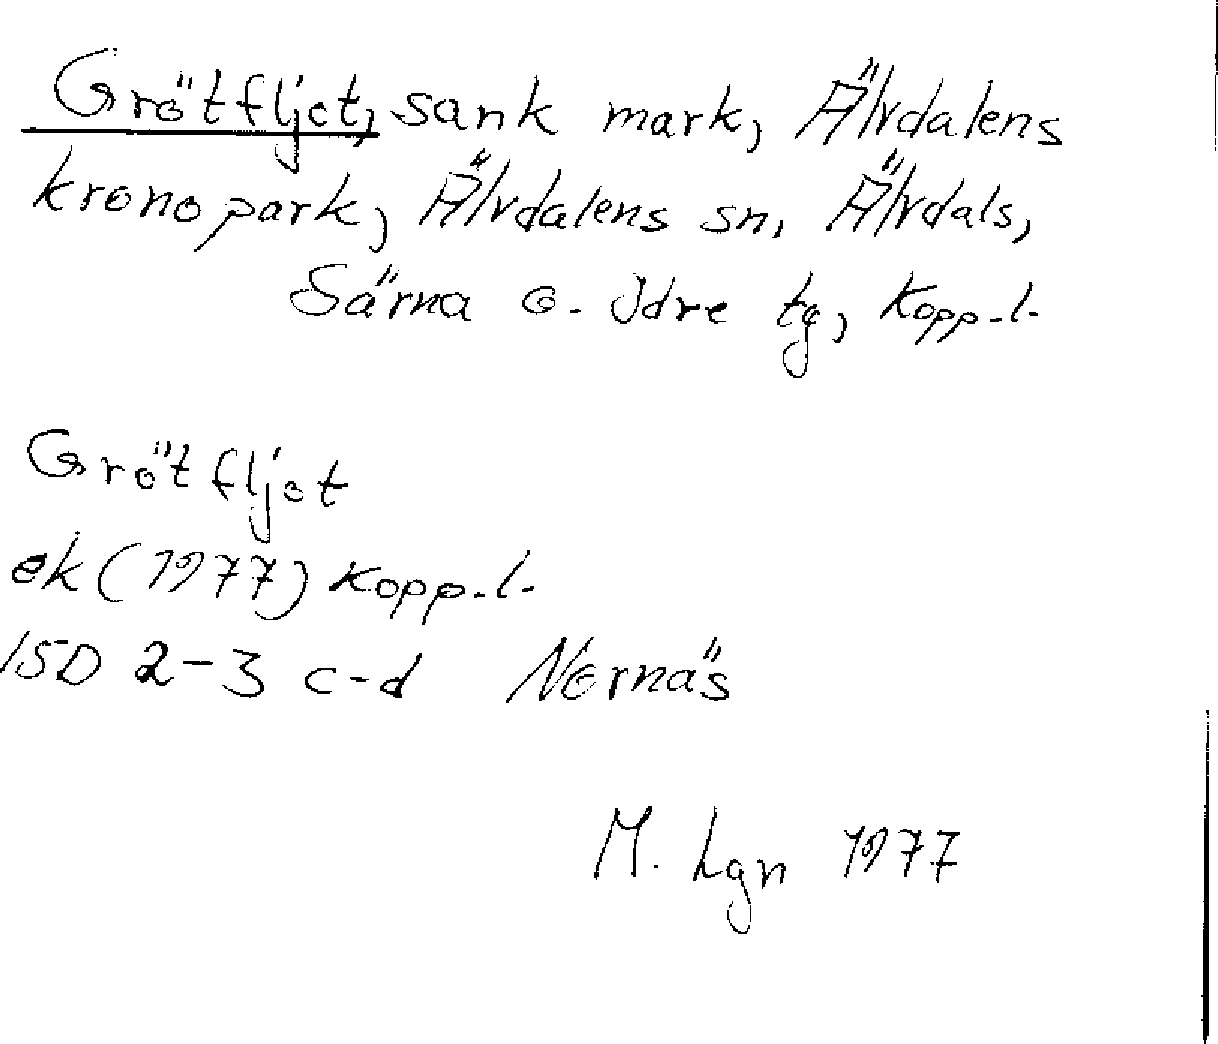 Grötfljot, sank mark, Älvdalens
kronopark, Älvdalens sn, Älvdals,
Särna o. Idre tg, Kopp.l.
Grötfljot
ek (1977) Kopp.l.
15D 2-3 c-d Nornäs
M. Lgn 1977